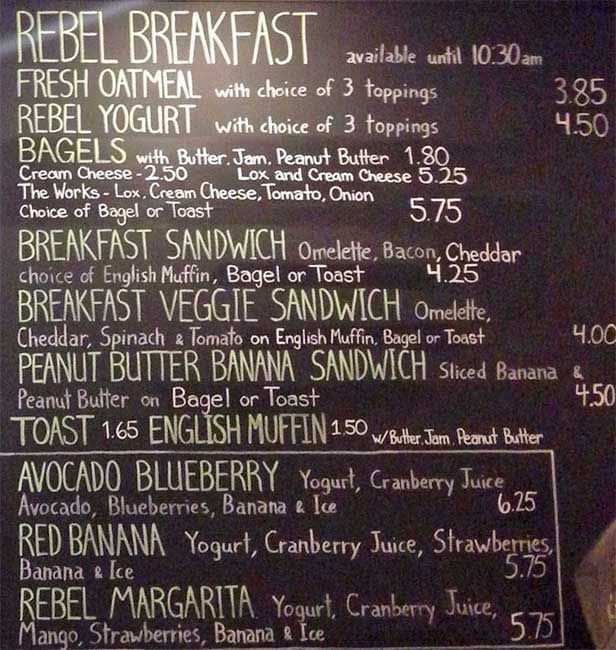 REBEL BREAKFAST available until 10:30am
FRESH OATMEAL with choice of 3 toppings 3.85
REBEL YOGURT with choice of 3 toppings 4.50
BAGELS with Butter, Jam, Peanut Butter 1.80
Cream Cheese - 2.50 Lox and Cream Cheese 5.25
The Works - Lox, Cream Cheese, Tomato, Onion
Choice of Bagel or Toast 5.75
BREAKFAST SANDWICH Omelette, Bacon, Cheddar
choice of English Muffin, Bagel or Toast 4.25
BREAKFAST VEGGIE SANDWICH Omelette,
Cheddar, Spinach & Tomato on English Muffin, Bagel or Toast 4.00
PEANUT BUTTER BANANA SANDWICH Sliced Banana &
Peanut Butter on Bagel or Toast 4.50
TOAST 1.65 ENGLISH MUFFIN 1.50 w/Butter, Jam, Peanut Butter
AVOCADO BLUEBERRY Yogurt, Cranberry Juice
Avocado, Blueberries, Banana & Ice 6.25
RED BANANA Yogurt, Cranberry Juice, Strawberries,
Banana & Ice 5.75
REBEL MARGARITA Yogurt, Cranberry Juice,
Mango, Strawberries, Banana & Ice 5.75